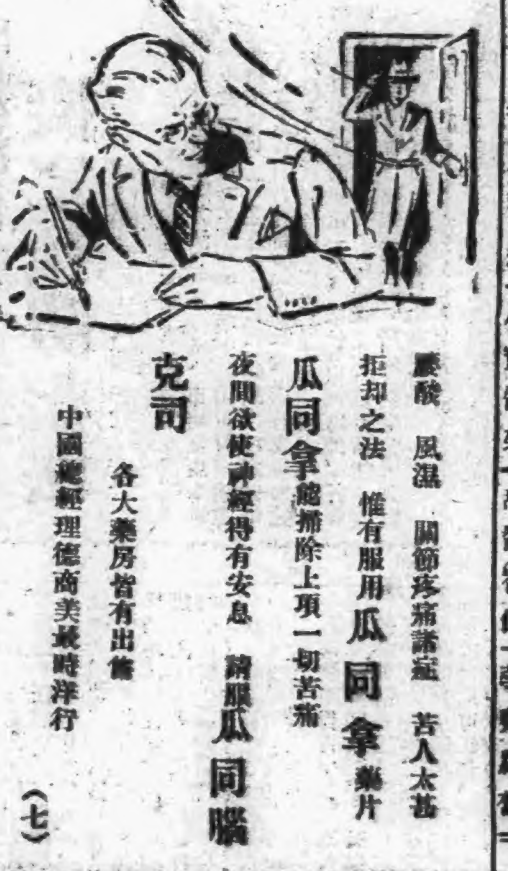 腰酸　風濕　關節疼痛諸症　苦人太甚
拒却之法　惟有服用瓜同拿藥片
瓜同拿能掃除上項一切苦痛
夜間欲使神經得有安息　請服瓜同腦
克司
各大藥房皆有出售
中國總經理德商美最時洋行
（七）